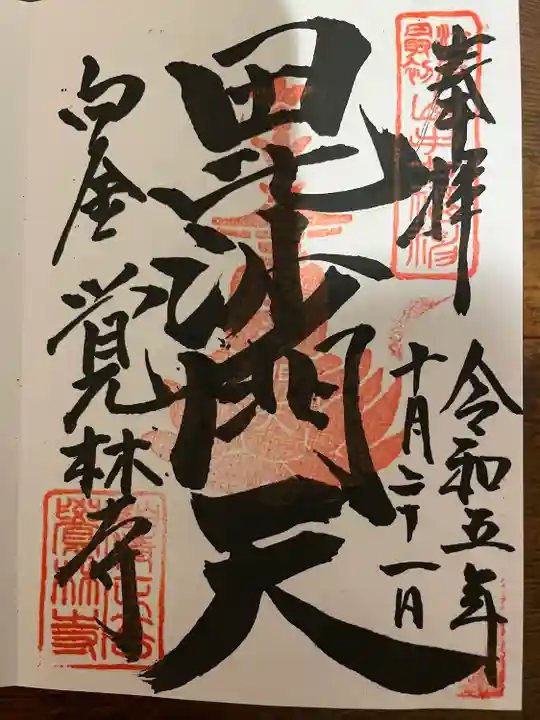 奉拝
令和五年
十月二十一日
毘沙門天
白金
覚林寺
覺林寺